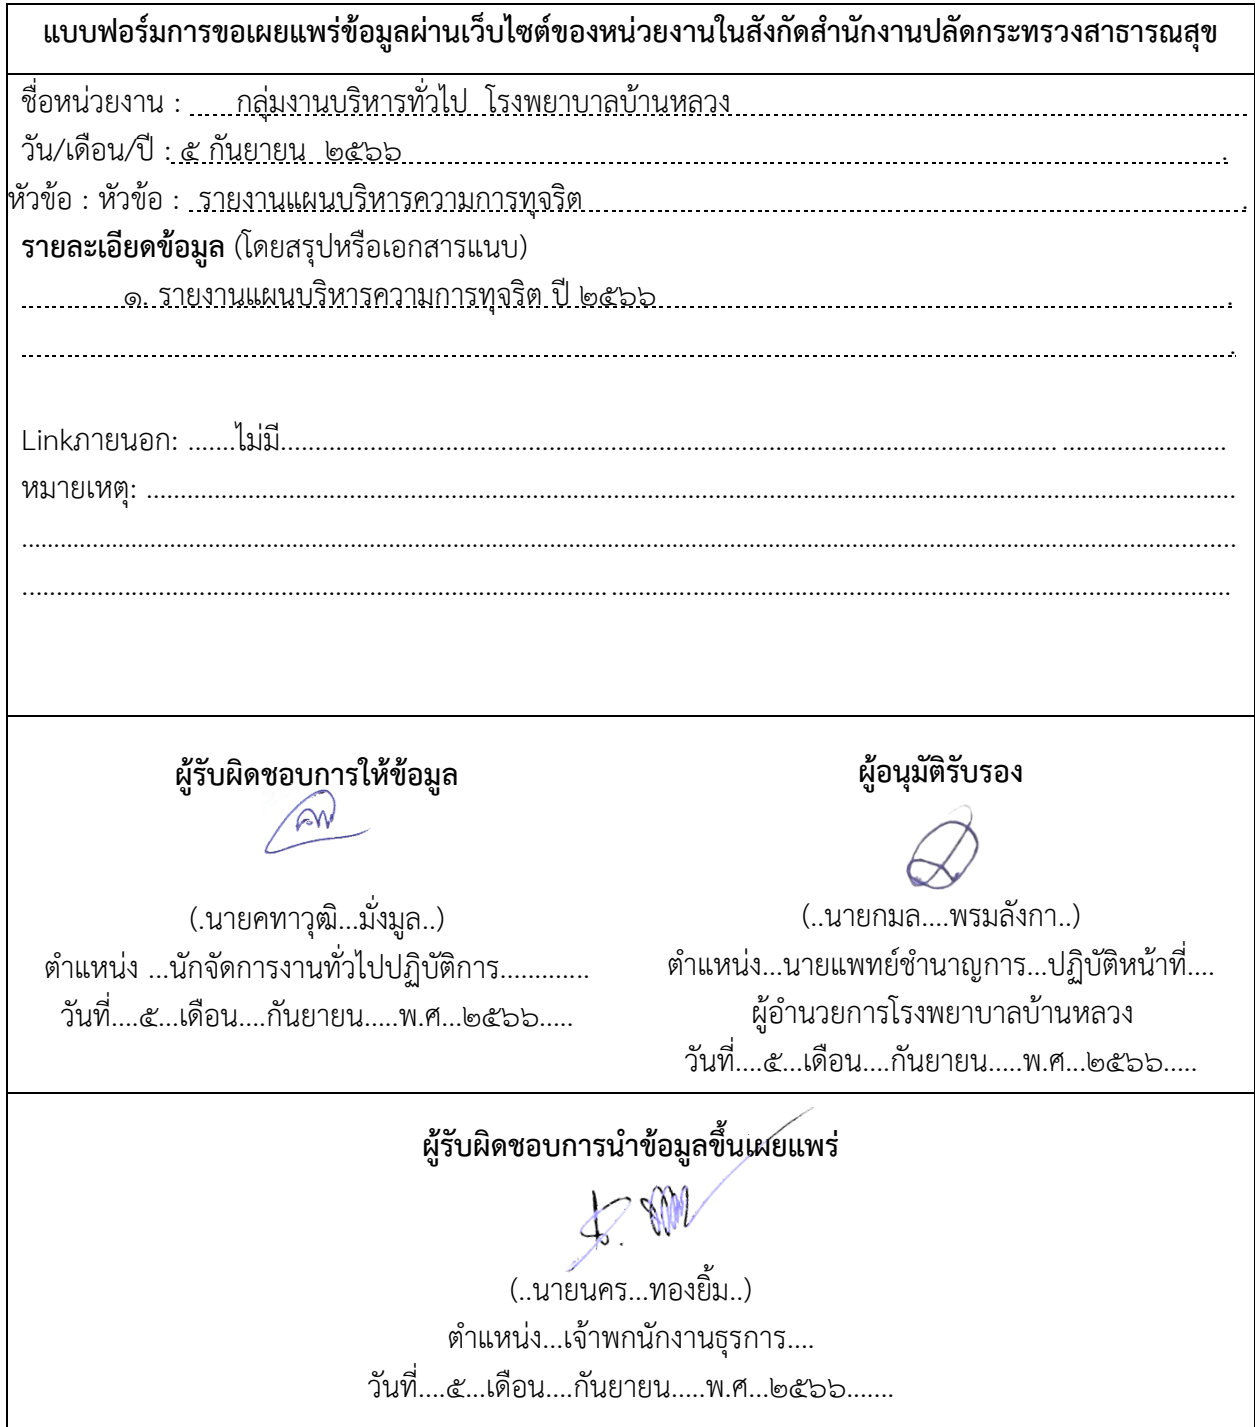 แบบฟอร์มการขอเผยแพร่ข้อมูลผ่านเว็บไซต์ของหน่วยงานในสังกัดสำนักงานปลัดกระทรวงสาธารณสุข
ชื่อหน่วยงาน : กลุ่มงานบริหารทั่วไป โรงพยาบาลบ้านหลวง
วัน/เดือน/ปี : ๕ กันยายน ๒๕๖๖
หัวข้อ : หัวข้อ : รายงานแผนบริหารความการทุจริต
รายละเอียดข้อมูล (โดยสรุปหรือเอกสารแนบ)
๑. รายงานแผนบริหารความการทุจริต ปี ๒๕๖๖
Linkภายนอก: .......ไม่มี..........
หมายเหตุ: ..........
ผู้รับผิดชอบการให้ข้อมูล
(.นายคทาวุฒิ...มั่งมูล..)
ตำแหน่ง ...นักจัดการงานทั่วไปปฏิบัติการ.............
วันที่....๕...เดือน....กันยายน.....พ.ศ...๒๕๖๖.....
ผู้อนุมัติรับรอง
(..นายกมล....พรมลังกา..)
ตำแหน่ง...นายแพทย์ชำนาญการ...ปฏิบัติหน้าที่....
ผู้อำนวยการโรงพยาบาลบ้านหลวง
วันที่....๕...เดือน....กันยายน.....พ.ศ...๒๕๖๖.....
ผู้รับผิดชอบการนำข้อมูลขึ้นเผยแพร่
(..นายนคร...ทองยิ้ม..)
ตำแหน่ง...เจ้าพกนักงานธุรการ....
วันที่....๕...เดือน....กันยายน.....พ.ศ...๒๕๖๖.......